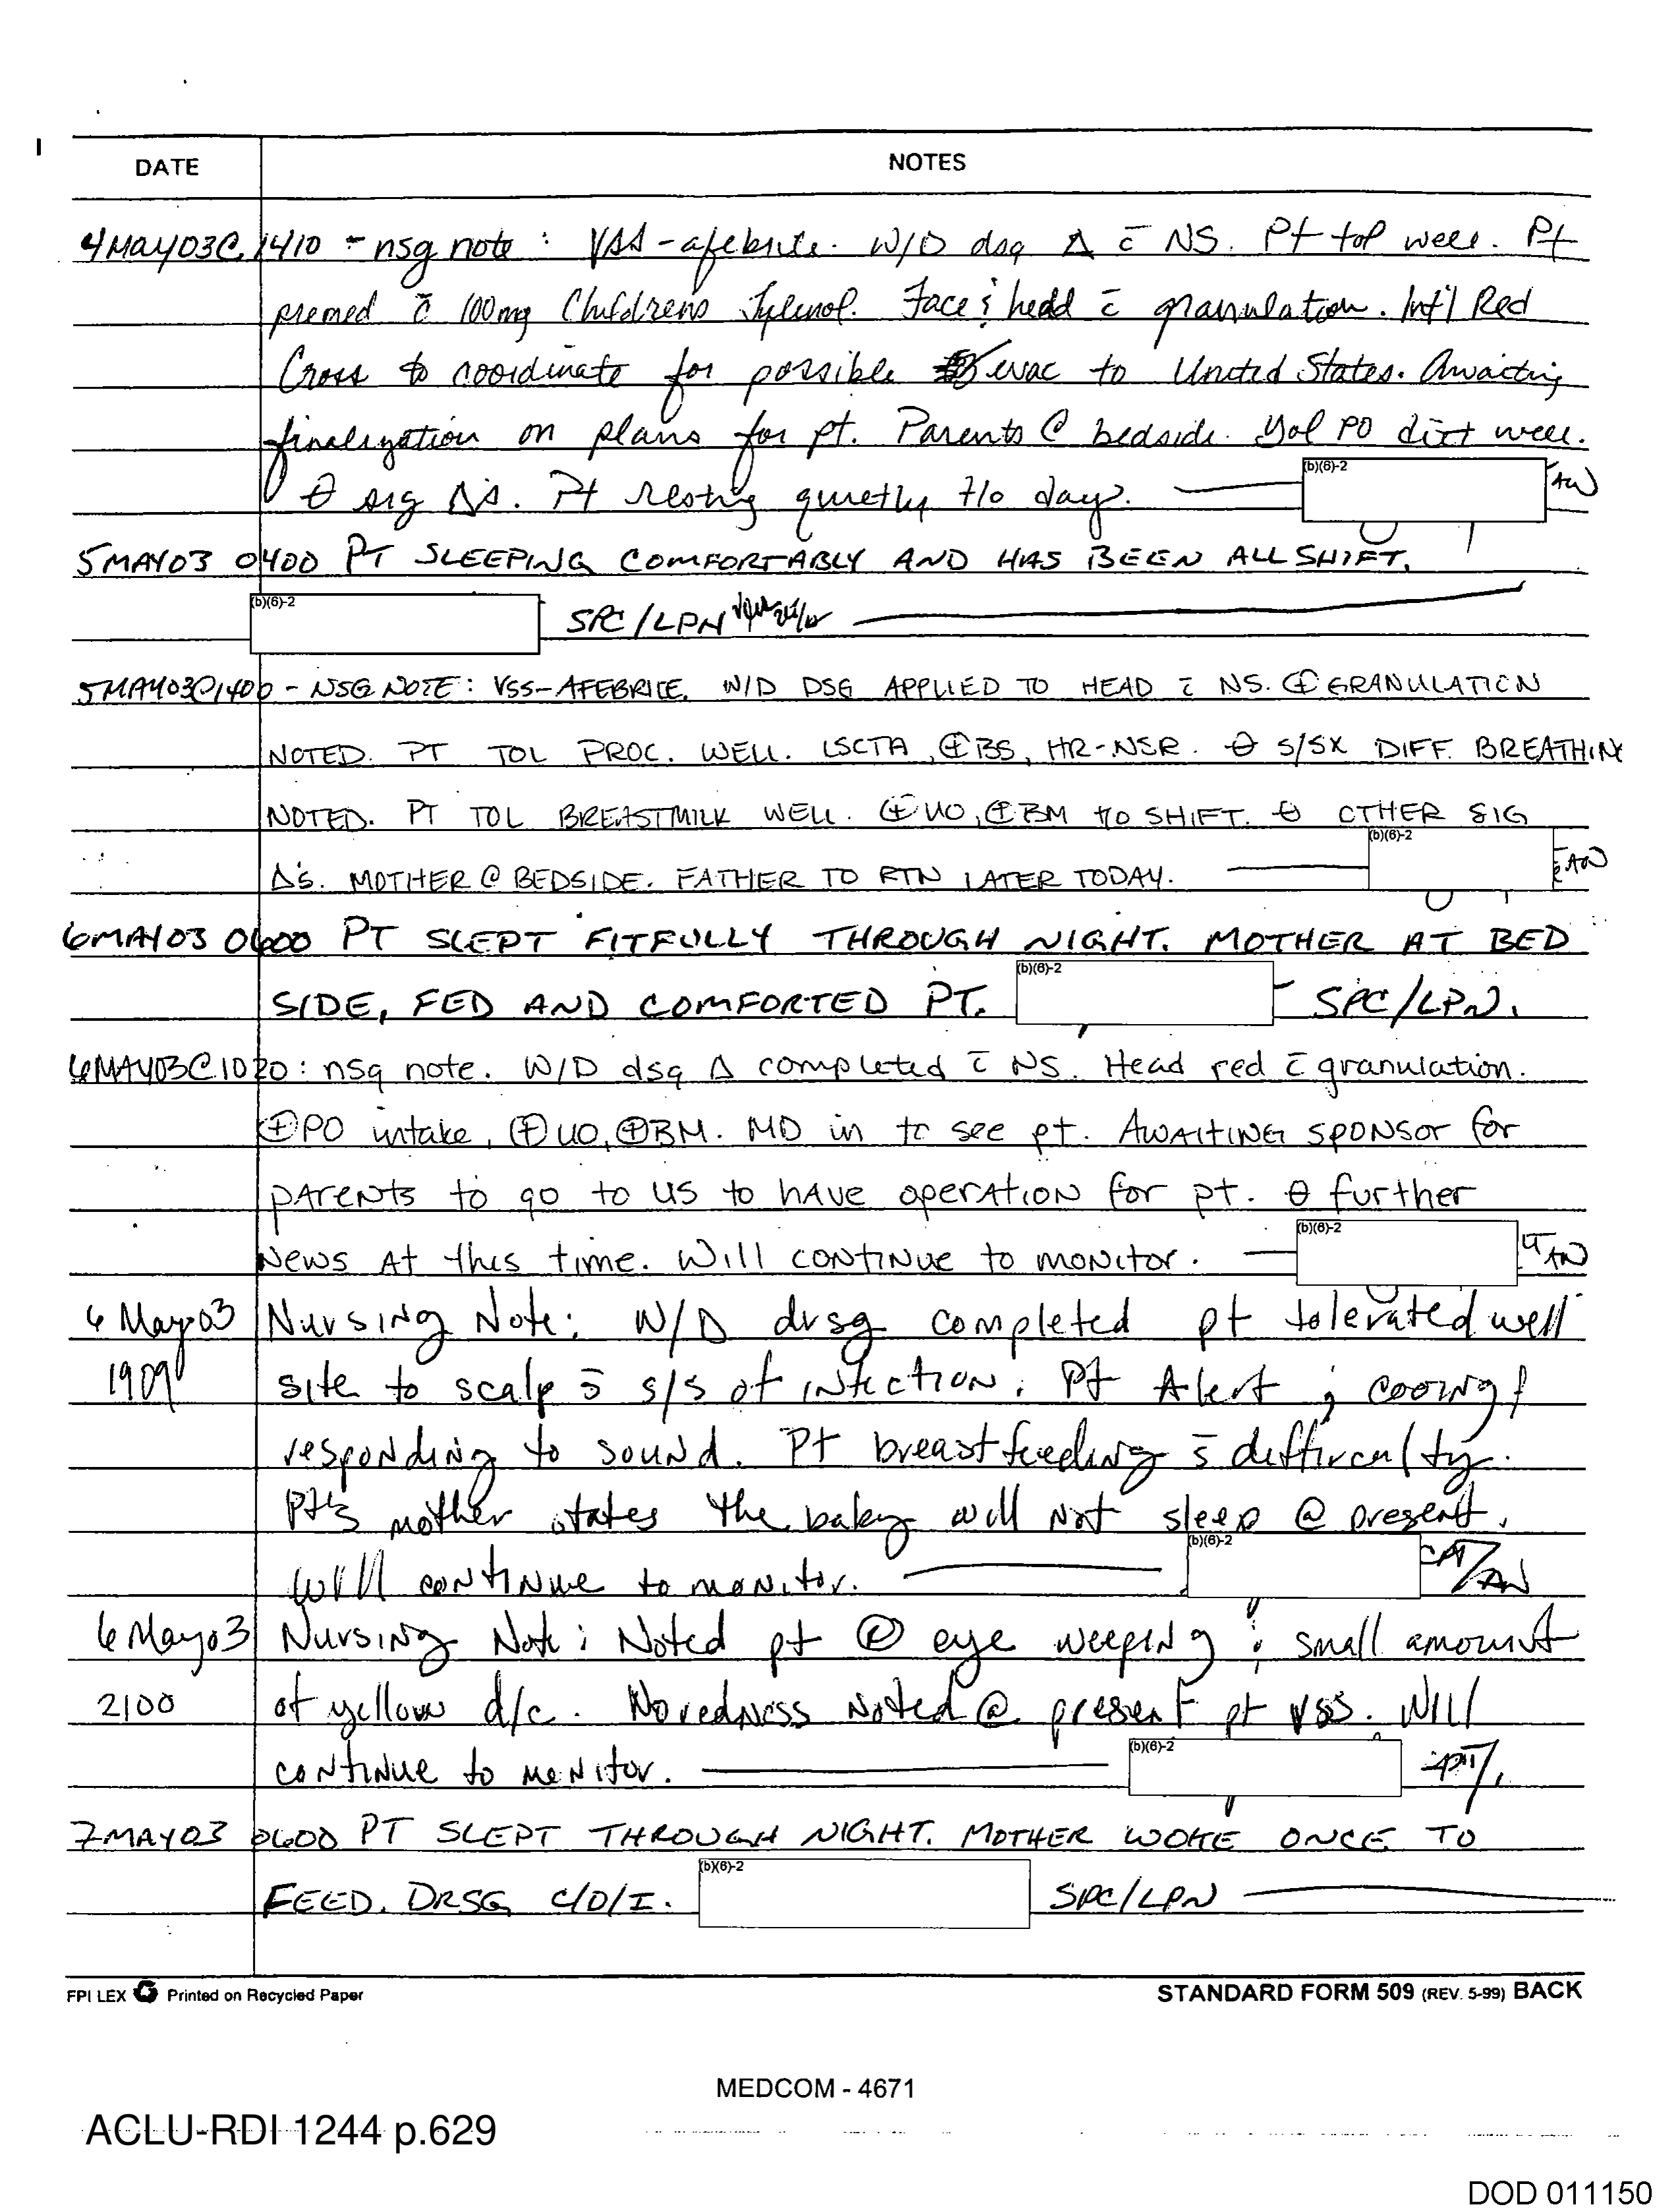 DATE NOTES
4MAY03@1410 - nsg note : VSS - afebrile. W/D dsg Δ c̄ NS. Pt tol well. Pt
premed c̄ 100mg Childrens Tylenol. Face & head c̄ granulation. Int'l Red
Cross to coordinate for possible evac to United States. Awaiting
finalization on plans for pt. Parents @ bedside. Tol PO diet well.
θ sig Δs. Pt resting quietly t/o day.
(b)(6)-2
AN
5MAY03 0400 PT SLEEPING COMFORTABLY AND HAS BEEN ALL SHIFT.
(b)(6)-2
SPC/LPN
5MAY03@1400 - NSG NOTE: VSS-AFEBRILE. W/D DSG APPLIED TO HEAD c̄ NS. ⊕ GRANULATION
NOTED. PT TOL PROC. WELL. LSCTA, ⊕BS, HR-NSR. θ S/SX DIFF. BREATHING
NOTED. PT TOL BREASTMILK WELL. ⊕UO, ⊕BM t/o SHIFT. θ OTHER SIG
Δ's. MOTHER @ BEDSIDE. FATHER TO RTN LATER TODAY.
(b)(6)-2
AN
6MAY03 0600 PT SLEPT FITFULLY THROUGH NIGHT. MOTHER AT BED
SIDE, FED AND COMFORTED PT.
(b)(6)-2
SPC/LPN.
6MAY03@1020: nsg note. W/D dsg Δ completed c̄ NS. Head red c̄ granulation.
⊕PO intake, ⊕UO, ⊕BM. MD in to see pt. AWAITING SPONSOR for
PARENTS to go to US to HAVE operATION for pt. θ further
News At this time. Will continue to monitor.
(b)(6)-2
LT AN
6 May 03 Nursing Note: W/D drsg completed pt tolerated well
1909 site to scalp s̄ s/s of infection. Pt Alert ; cooing &
responding to sound. Pt breastfeeding s̄ difficulty.
Pt's mother states the baby will not sleep @ present.
Will continue to monitor.
(b)(6)-2
CPT/AN
6 May 03 Nursing Note: Noted pt Ⓡ eye weeping ; small amount
2100 of yellow d/c. No redness noted @ present pt VSS. Will
continue to monitor.
(b)(6)-2
7MAY03 0600 PT SLEPT THROUGH NIGHT. MOTHER WOKE ONCE TO
FEED. DRSG C/D/I.
(b)(6)-2
SPC/LPN
FPI LEX Printed on Recycled Paper STANDARD FORM 509 (REV. 5-99) BACK
MEDCOM - 4671
ACLU-RDI 1244 p.629
DOD 011150